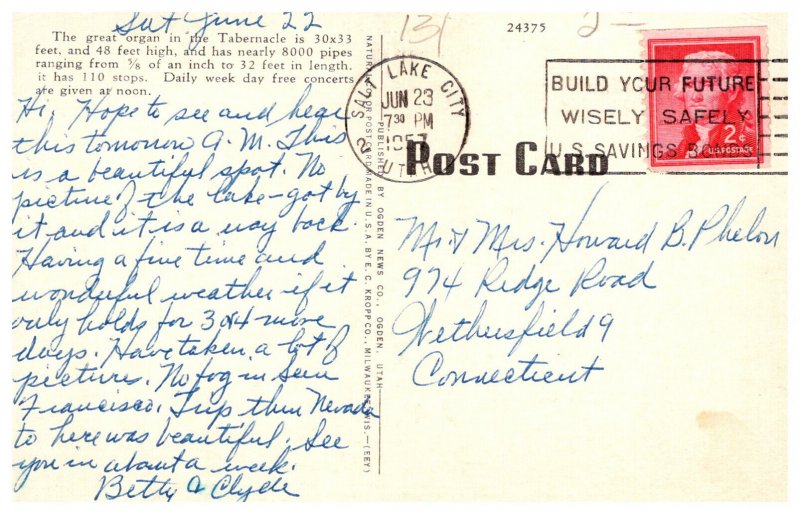 Sat June 22
The great organ in the Tabernacle is 30x33
feet, and 48 feet high, and has nearly 8000 pipes
ranging from ⅝ of an inch to 32 feet in length.
it has 110 stops. Daily week day free concerts
are given at noon.
Hi. Hope to see and hear
this tomorrow A.M. This
is a beautiful spot. No
picture of the lake - got by
it and it is a way back.
Having a fine time and
wonderful weather if it
only holds for 3 or 4 more
days. Have taken a lot of
pictures. No fog in San
Francisco. Trip thru Nevada
to here was beautiful. See
you in about a week.
Betty & Clyde
NATURAL COLOR POST CARD MADE IN U.S.A. BY E. C. KROPP CO., MILWAUKEE, WIS.—(EEY)
PUBLISHED BY OGDEN NEWS CO., OGDEN, UTAH
131
24375
2-
SALT LAKE CITY
JUN 23
7 30 PM
1957
2 UTAH
BUILD YOUR FUTURE
WISELY SAFELY
U.S. SAVINGS BONDS
2¢
U.S. POSTAGE
POST CARD
Mr. & Mrs. Howard B. Phelon
974 Ridge Road
Wethersfield 9
Connecticut